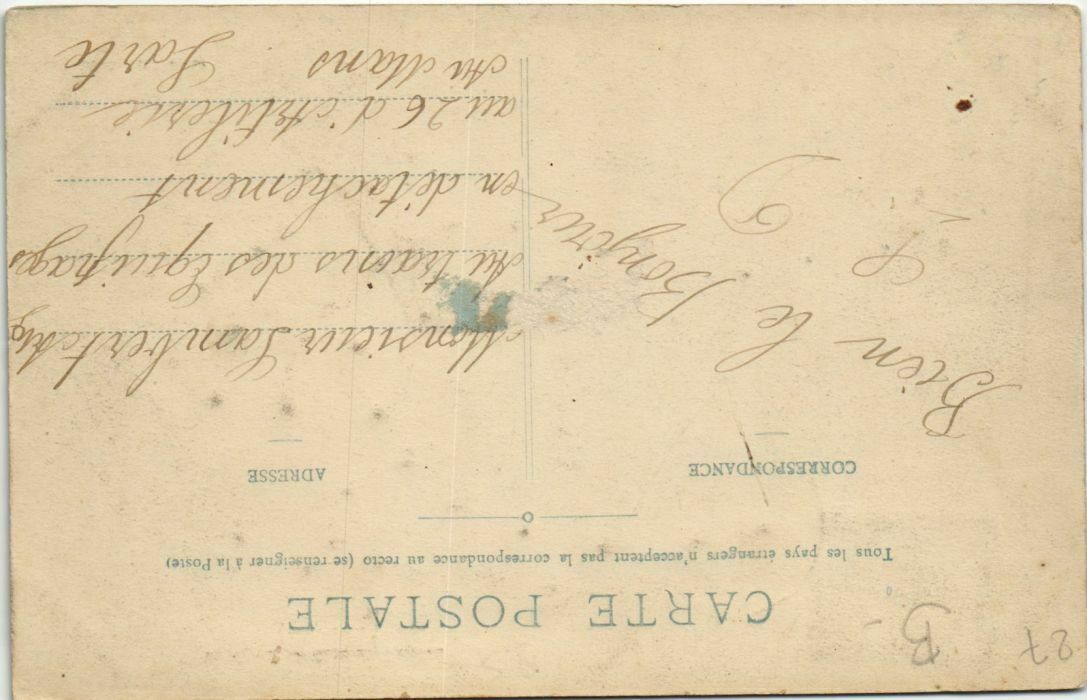 27
B
CARTE POSTALE
Tous les pays étrangers n'acceptent pas la correspondance au recto (se renseigner à la Poste)
CORRESPONDANCE
Bien le Bonjour
ADRESSE
Monsieur
Au trains des Equipages
en détachement
au 26 d'Artilerie
Au Mans
Sarte